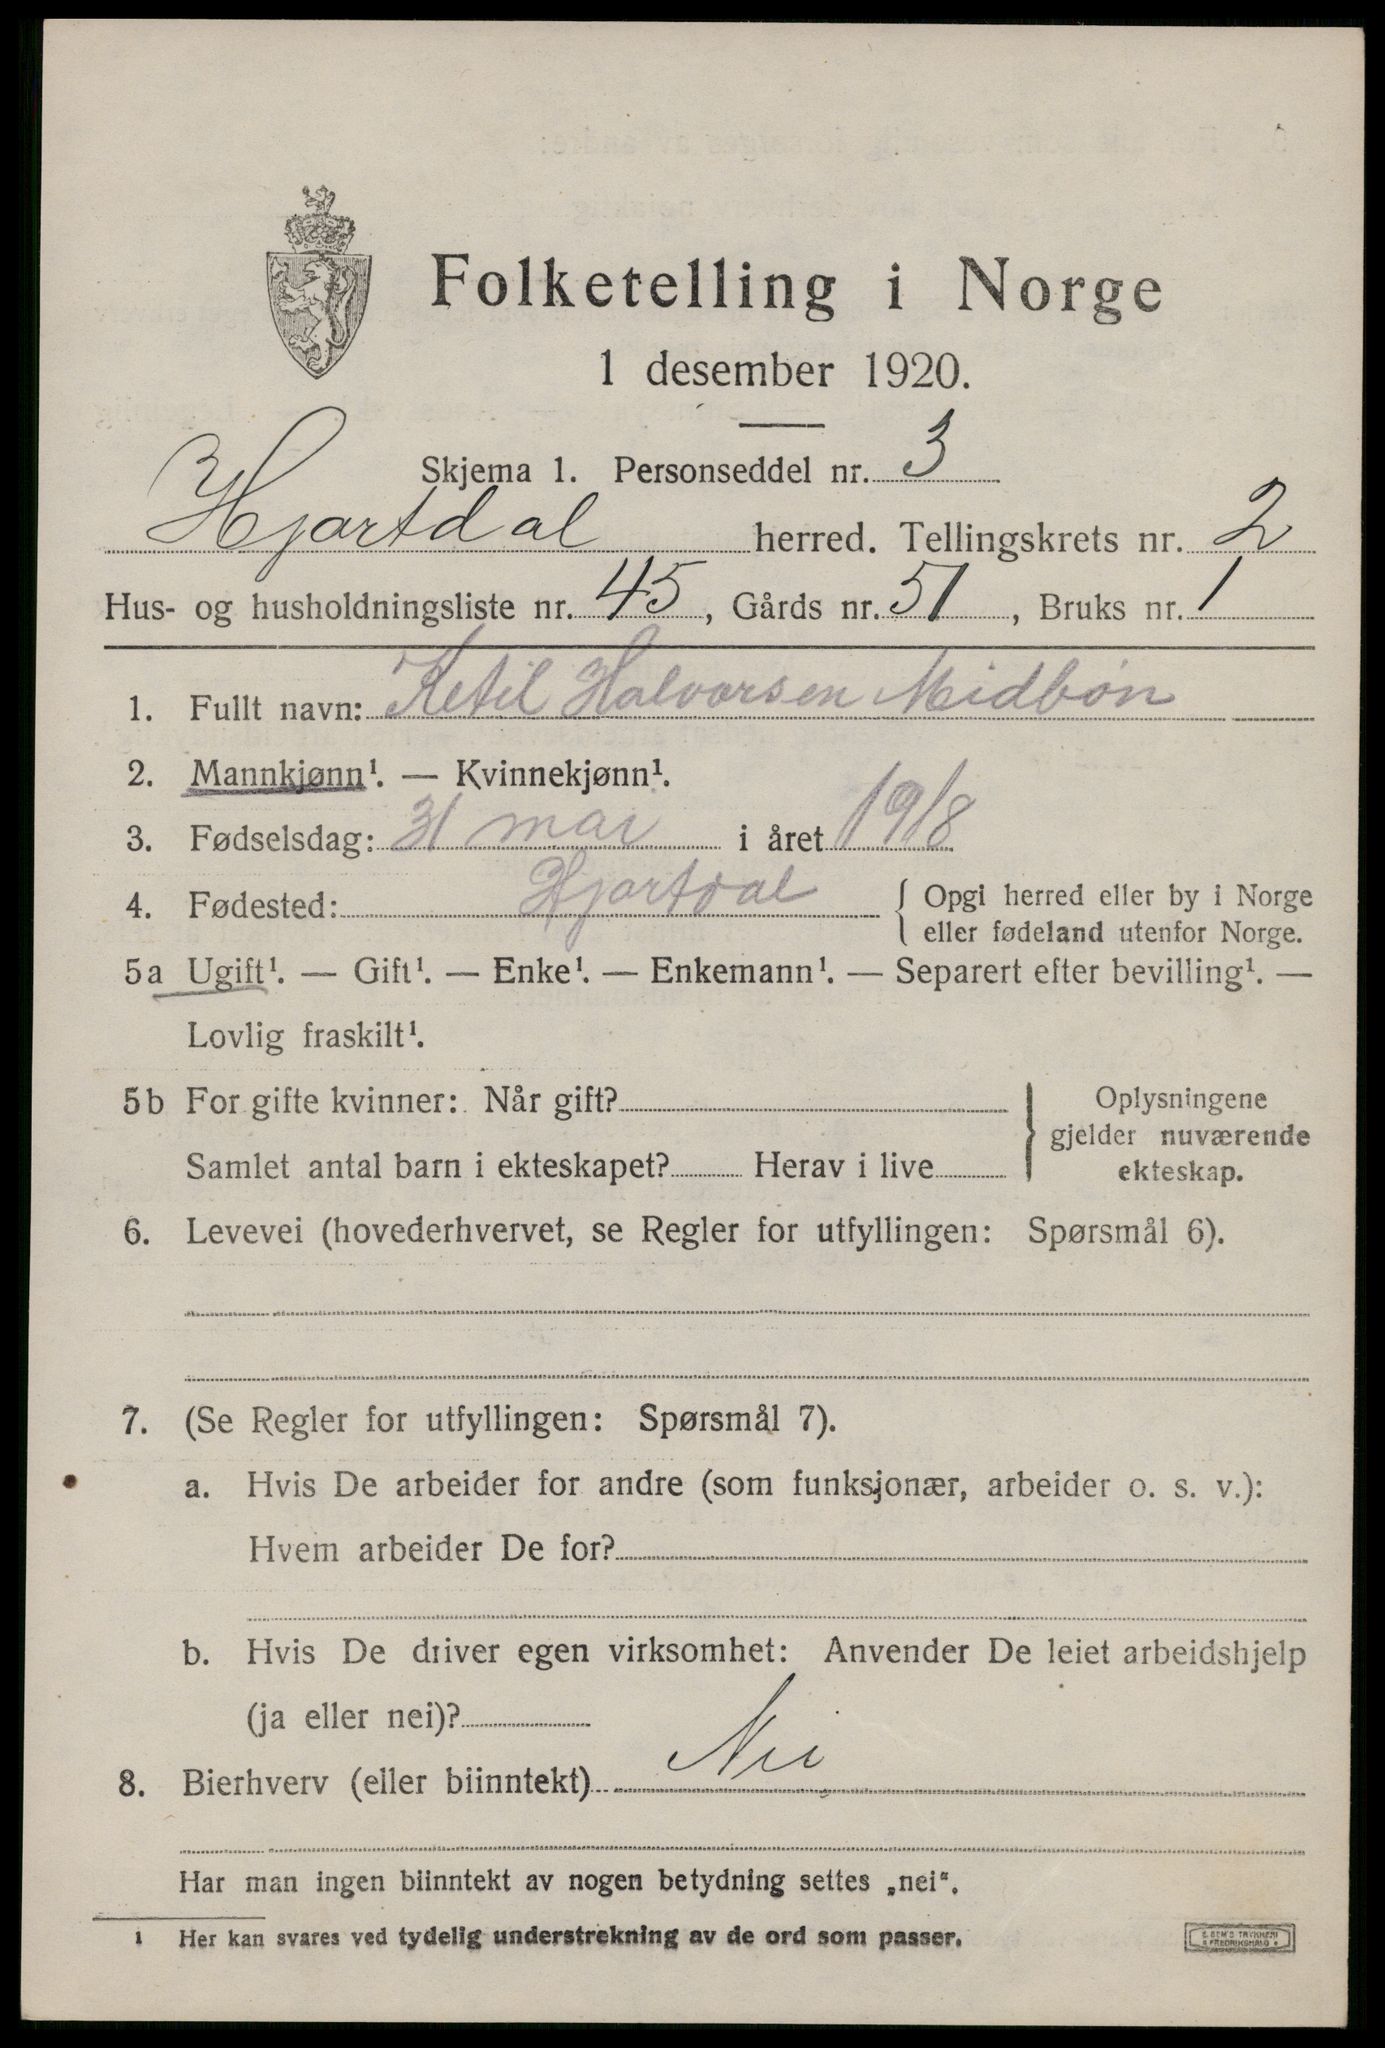 Folketelling i Norge
1 desember 1920.
Skjema 1. Personseddel nr. 3
Hjartdal herred. Tellingskrets nr. 2
Hus- og husholdningsliste nr. 45, Gårds nr. 51, Bruks nr. 1
1. Fullt navn: Ketil Halvorsen Midbøn
2. Mannkjønn¹. — Kvinnekjønn¹.
3. Fødselsdag: 31 mai i året 1918
4. Fødested: Hjartdal { Opgi herred eller by i Norge
eller fødeland utenfor Norge.
5a Ugift¹. — Gift¹. — Enke¹. — Enkemann¹. — Separert efter bevilling¹. —
Lovlig fraskilt¹.
5b For gifte kvinner: Når gift?
Samlet antal barn i ekteskapet? Herav i live
} Oplysningene
gjelder nuværende
ekteskap.
6. Levevei (hovederhvervet, se Regler for utfyllingen: Spørsmål 6).
7. (Se Regler for utfyllingen: Spørsmål 7).
a. Hvis De arbeider for andre (som funksjonær, arbeider o. s. v.):
Hvem arbeider De for?
b. Hvis De driver egen virksomhet: Anvender De leiet arbeidshjelp
(ja eller nei)?
8. Bierhverv (eller biinntekt) Nei
Har man ingen biinntekt av nogen betydning settes „nei“.
1 Her kan svares ved tydelig understrekning av de ord som passer.